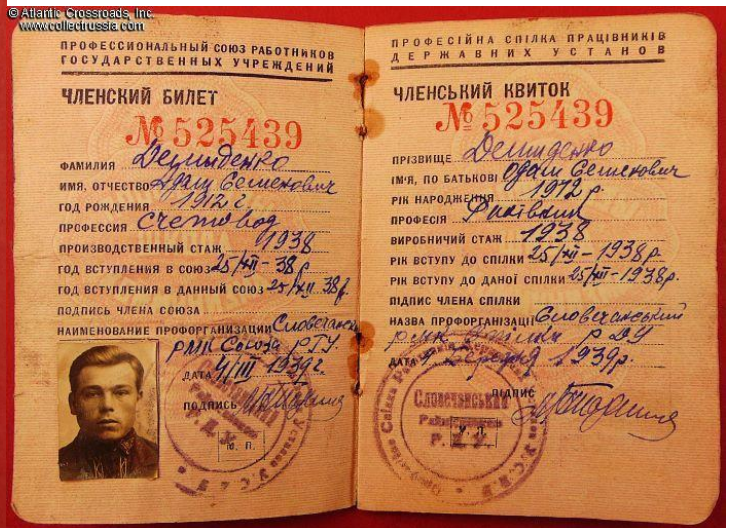 © Atlantic Crossroads, Inc.
www.collectrussia.com
ПРОФЕССИОНАЛЬНЫЙ СОЮЗ РАБОТНИКОВ
ГОСУДАРСТВЕННЫХ УЧРЕЖДЕНИЙ
ЧЛЕНСКИЙ БИЛЕТ
№ 525439
ФАМИЛИЯ Демиденко
ИМЯ, ОТЧЕСТВО Адам Семенович
ГОД РОЖДЕНИЯ 1912 г.
ПРОФЕССИЯ Счетовод
ПРОИЗВОДСТВЕННЫЙ СТАЖ 1938
ГОД ВСТУПЛЕНИЯ В СОЮЗ 25/XII-38р.
ГОД ВСТУПЛЕНИЯ В ДАННЫЙ СОЮЗ 25/XII 38р.
ПОДПИСЬ ЧЛЕНА СОЮЗА
НАИМЕНОВАНИЕ ПРОФОРГАНИЗАЦИИ Словечанск
РМК Союза РГУ
ДАТА 4/III 1939г.
ПОДПИСЬ
М. П.
ПРОФЕСІЙНА СПІЛКА ПРАЦІВНИКІВ
ДЕРЖАВНИХ УСТАНОВ
ЧЛЕНСЬКИЙ КВИТОК
№ 525439
ПРІЗВИЩЕ Демиденко
ІМ'Я, ПО БАТЬКОВІ Одам Семенович
РІК НАРОДЖЕННЯ 1912 р.
ПРОФЕСІЯ
ВИРОБНИЧИЙ СТАЖ 1938
РІК ВСТУПУ ДО СПІЛКИ 25/XII-1938р.
РІК ВСТУПУ ДО ДАНОЇ СПІЛКИ 25/XII-1938р.
ПІДПИС ЧЛЕНА СПІЛКИ
НАЗВА ПРОФОРГАНІЗАЦІЇ Словечанський
рмк Спілки РДУ
ДАТА 1939р.
ПІДПИС
Словечанський
Р. Д. У.